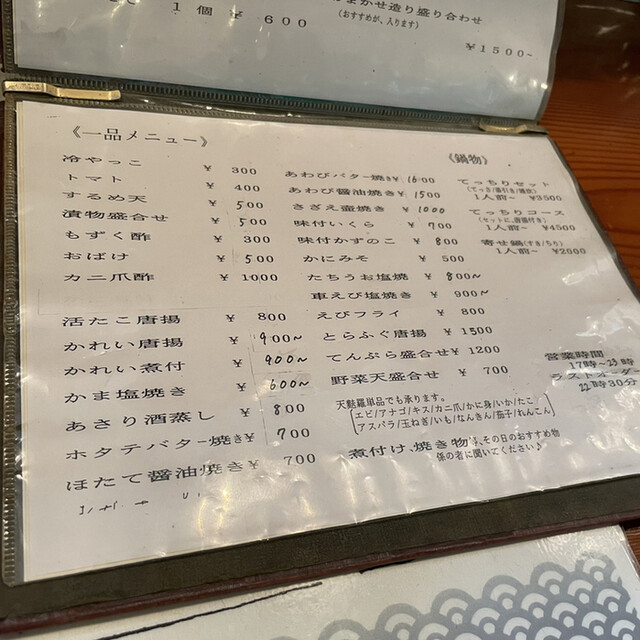 1個 ¥600
かせ造り盛り合わせ
(おすすめが、入ります)
¥1500~
《一品メニュー》
冷やっこ ¥ 300
トマト ¥ 400
するめ天 ¥ 500
漬物盛合せ ¥ 500
もずく酢 ¥ 300
おばけ ¥ 500
カニ爪酢 ¥ 1000
活たこ唐揚 ¥ 800
かれい唐揚 ¥ 900~
かれい煮付 ¥ 900~
かま塩焼き ¥ 600~
あさり酒蒸し ¥ 800
ホタテバター焼き¥ 700
ほたて醤油焼き¥ 700
あわびバター焼き¥ 1600
あわび醤油焼き¥ 1500
さざえ壷焼き ¥ 1000
味付いくら ¥ 700
味付かずのこ ¥ 800
かにみそ ¥ 500
たちうお塩焼 ¥ 800~
車えび塩焼き ¥ 900~
えびフライ ¥ 800
とらふぐ唐揚 ¥ 1500
てんぷら盛合せ¥ 1200
野菜天盛合せ ¥ 700
天麩羅単品でも承ります。
[エビ/アナゴ/キス/カニ爪/かに身/いか/たこ
アスパラ/玉ねぎ/いも/なんきん/茄子/れんこん]
煮付け・焼き物は、その日のおすすめ物
係の者に聞いてください♪
《鍋物》
てっちりセット
1人前~ ¥3500
てっちりコース
(セットに、唐揚付き)
1人前~ ¥4500
寄せ鍋(すき/ちり)
1人前~ ¥2000
営業時間
17時~23時
ラストオーダー
22時30分